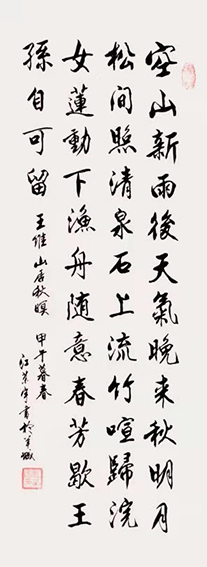 空山新雨後天氣晚来秋明月
松間照清泉石上流竹喧歸浣
女蓮動下漁舟随意春芳歇王
孫自可留
王維山居秋暝
甲午暮春
江榮宇書於羊城